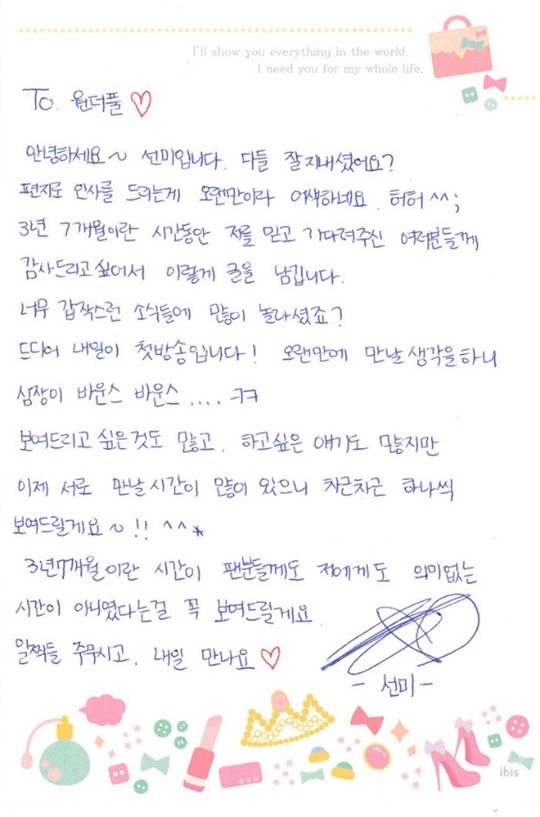 I'll show you everything in the world.
I need you for my whole life.
To. 원더풀 ♡
안녕하세요~ 선미입니다. 다들 잘지내셨어요?
편지로 인사를 드리는게 오랜만이라 어색하네요. 허허^^;
3년 7개월이란 시간동안 저를 믿고 기다려주신 여러분들께
감사드리고싶어서 이렇게 글을 남깁니다.
너무 갑작스런 소식들에 많이 놀라셨죠?
드디어 내일이 첫방송입니다! 오랜만에 만날생각을하니
심장이 바운스 바운스 .... ㅋㅋ
보여드리고싶은것도 많고, 하고싶은 얘기도 많지만
이제 서로 만날시간이 많이 있으니 차근차근 하나씩
보여드릴게요~!! ^^*
3년7개월이란 시간이 팬분들께도 저에게도 의미없는
시간이 아니였다는걸 꼭 보여드릴게요.
일찍들 주무시고, 내일 만나요♡
- 선미 -
ibis